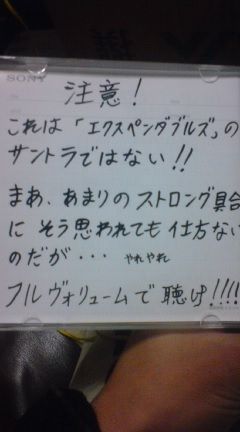 SONY
注意!
これは「エクスペンダブルズ」の
サントラではない!!
まあ、あまりのストロング具合
に そう思われても仕方ない
のだが・・・ やれやれ
フルヴォリュームで聴け!!!!